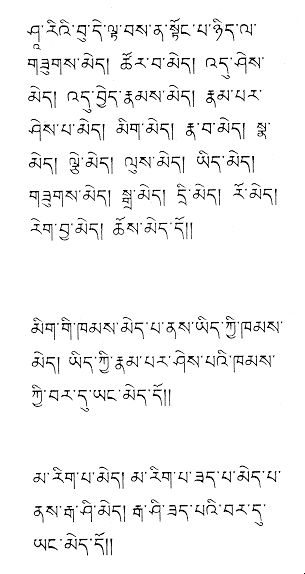 ཤཱ་རིའི་བུ་དེ་ལྟ་བས་ན་སྟོང་པ་ཉིད་ལ་
གཟུགས་མེད། ཚོར་བ་མེད། འདུ་ཤེས་
མེད། འདུ་བྱེད་རྣམས་མེད། རྣམ་པར་
ཤེས་པ་མེད། མིག་མེད། རྣ་བ་མེད། སྣ་
མེད། ལྕེ་མེད། ལུས་མེད། ཡིད་མེད།
གཟུགས་མེད། སྒྲ་མེད། དྲི་མེད། རོ་མེད།
རེག་བྱ་མེད། ཆོས་མེད་དོ།།
མིག་གི་ཁམས་མེད་པ་ནས་ཡིད་ཀྱི་ཁམས་
མེད། ཡིད་ཀྱི་རྣམ་པར་ཤེས་པའི་ཁམས་
ཀྱི་བར་དུ་ཡང་མེད་དོ།།
མ་རིག་པ་མེད། མ་རིག་པ་ཟད་པ་མེད་པ་
ནས་རྒ་ཤི་མེད། རྒ་ཤི་ཟད་པའི་བར་དུ་
ཡང་མེད་དོ།།